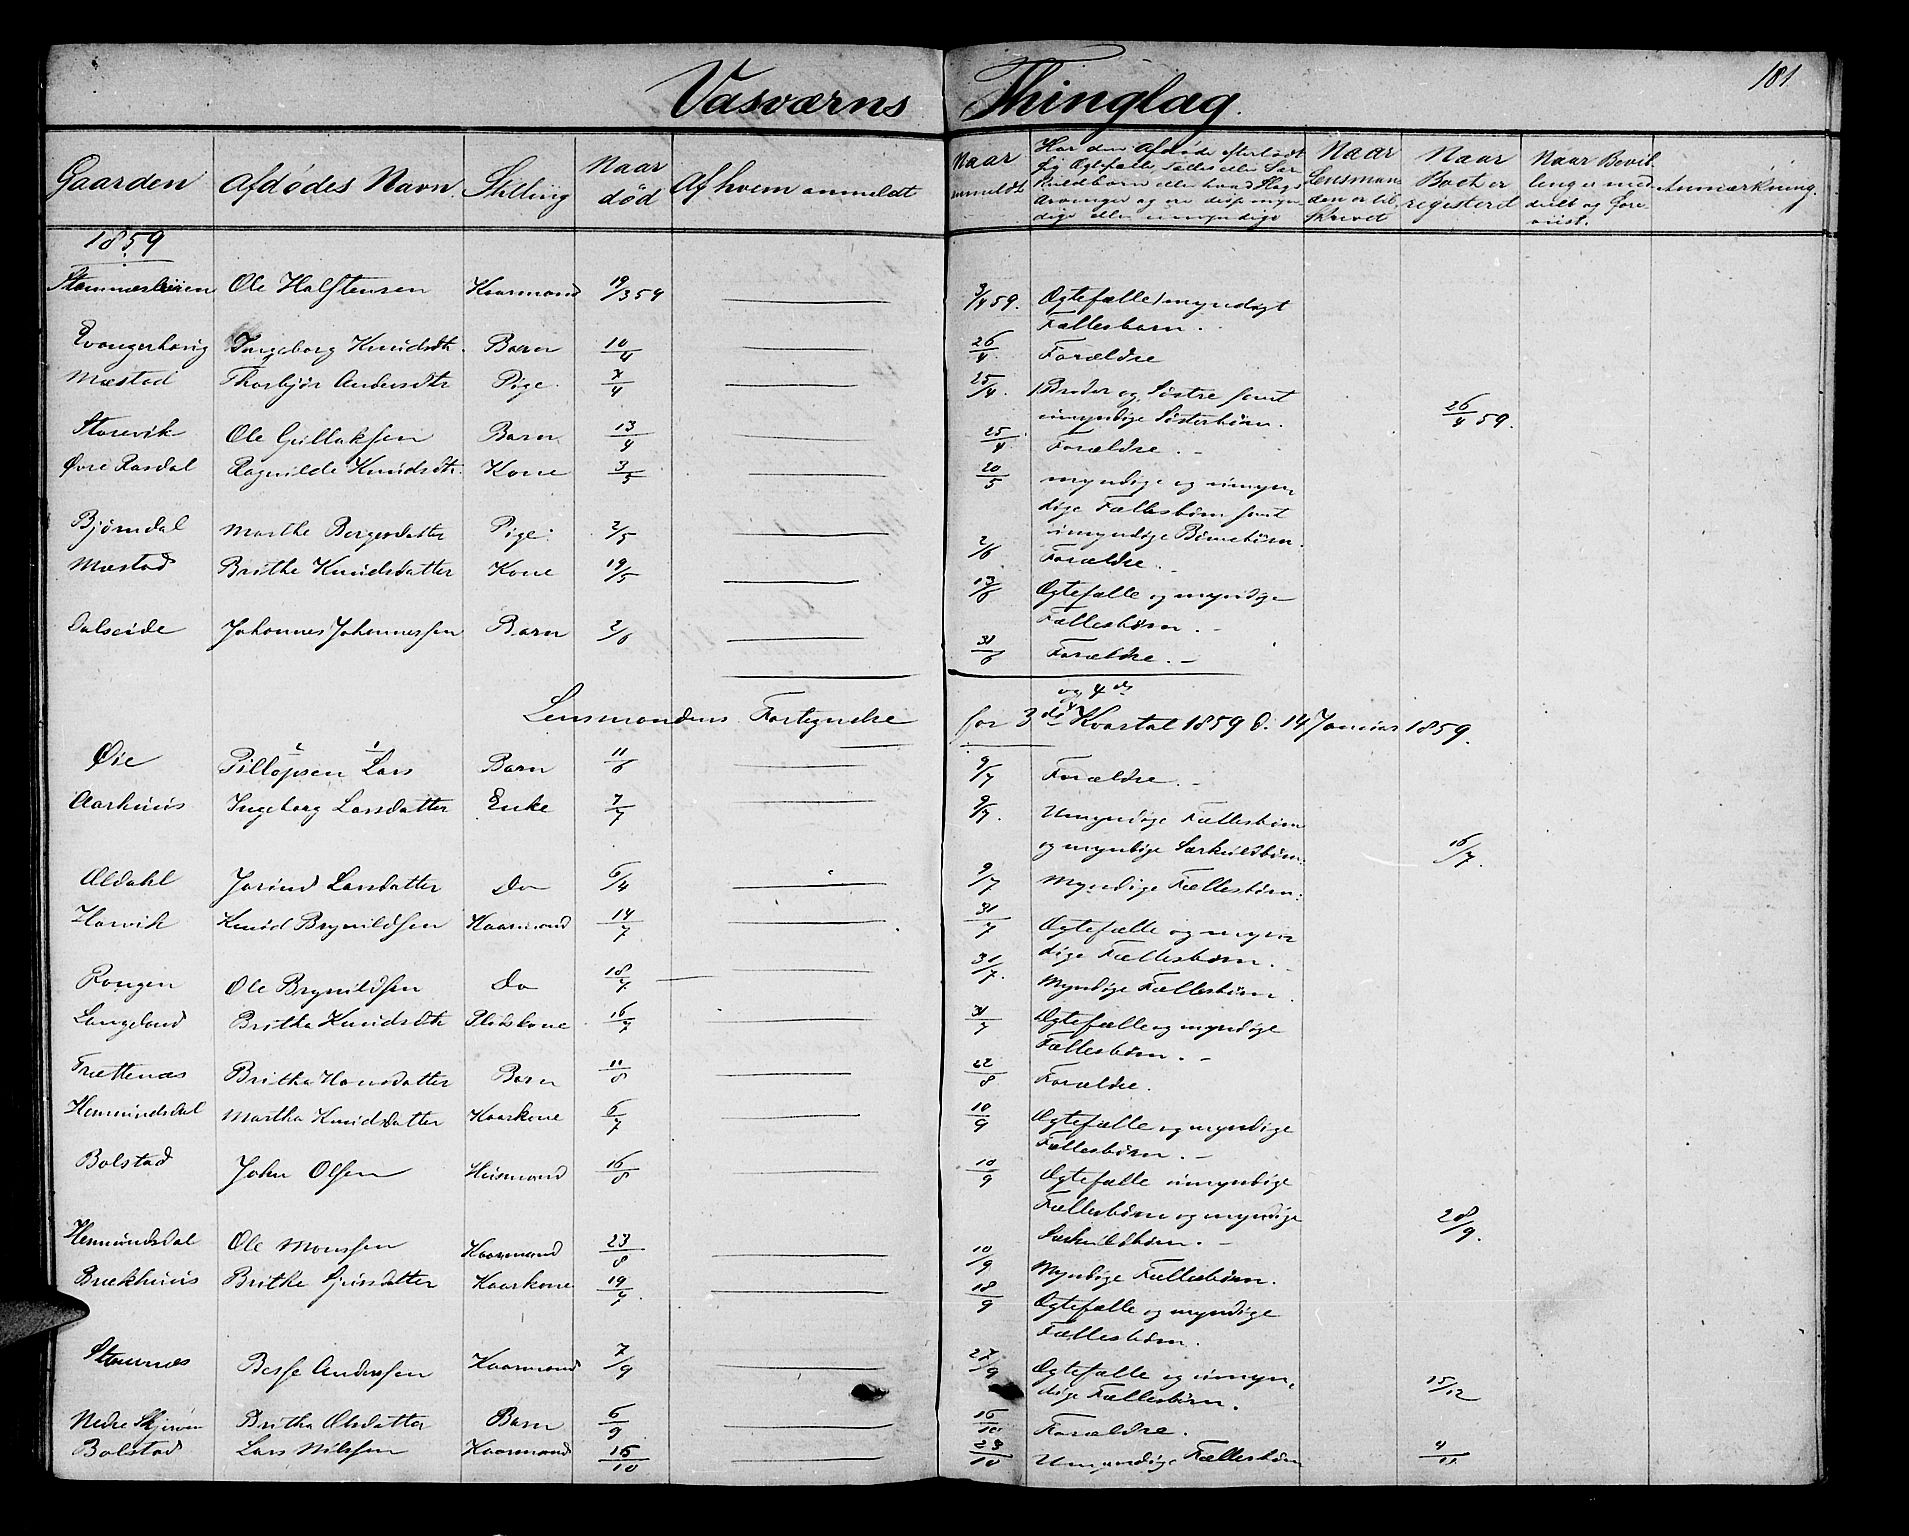 Vasværns Thinglag.
181
Gaarden Afdødes Navn Stilling Naar død Af hvem anmeldt
Naar anmeldt Har den Afdøde efterladt sig Ægtefælle, Fælles eller Særkuldbørn eller hvad Slags Arvinger og ere disse myndige eller umyndige Naar Lensmanden er tilskrevet Naar Boet er registerd Naar Bevillenge er meddeelt og foreviist. Anmærkning.
1859
Ole Halstensen Kaarmand 19/3 59 3/4 59. Ægtefælle, myndigt
Fællesbarn.
Evangerhaug Ingeborg Knudsdtr. Barn 10/4 26/4 Forældre
Mæstad Thorbjør Andersdtr Pige. 7/4 25/4. Broder og Søstre samt
umyndige Søsterbørn. 26/4 59.
Storevik Ole Gullaksen Barn 13/4 25/4 Forældre.
Øvre Rasdal Ragnilde Knudsdtr. Kone 3/5 20/5 myndige og umyn
dige Fællesbørn samt
umyndige Børnebørn.
Bjørndal Marthe Bergesdatter Pige. 2/5 2/6 Forældre.
Mæstad Brithe Knudsdatter Kone 19/5 13/6 Ægtefælle og myndige
Fællesbørn.
Dalseide Johannes Johannessen Barn 2/6 31/6 Forældre.
og 4de
Lensmandens Fortegnelse for 3de Kvartal 1859 d. 14 Januar 1859.
Øie Pillopsen Lars Barn 11/6 9/7 Forældre.
Aarhuus Ingeborg Larsdatter Enke 7/7 9/7. Umyndige Fællesbørn
og myndige Særkuldbørn. 16/7.
Øldahl Jorind Larsdatter Do 6/4 9/7 Myndige Fællesbørn.
Horvik Knud Brynildsen Kaarmand 14/7 31/7 Ægtefælle og myn
dige Fællesbørn.
Rongen Ole Brynildsen Do 18/7 31/7. Myndige Fællesbørn.
Langeland Britha Knudsdtr Pladskone 16/7 31/7 Ægtefælle og myndige
Fællesbørn.
Frættenæs Britha Hansdatter Barn 11/8 22/8 Forældre.
Hemmindsdal Martha Knudsdatter Kaarkone 6/7 10/9 Ægtefælle og myndige
Fællesbørn.
Bolstad John Olsen Huusmand 16/8 10/9 Ægtefælle umyndige
Fællesbørn og myndige
Særkuldbørn. 28/9.
Hemmindsdal Ole Monssen Kaarmand 23/8 10/9 Myndige Fællesbørn.
Brækhuus Brithe Sjursdatter Kaarkone 19/7. 18/9 Ægtefælle og myndige
Fællesbørn.
Stamnæs Besse Anderssen Kaarmand 7/9 27/9 Ægtefælle og umyn
dige Fællesbørn. 15/12
Nedre Britha Olsdatter Barn 6/9 16/10 Forældre.
Bolstad Lars Nilssen Kaarmand 15/10 23/10 Umyndige Fællesbørn 4/11